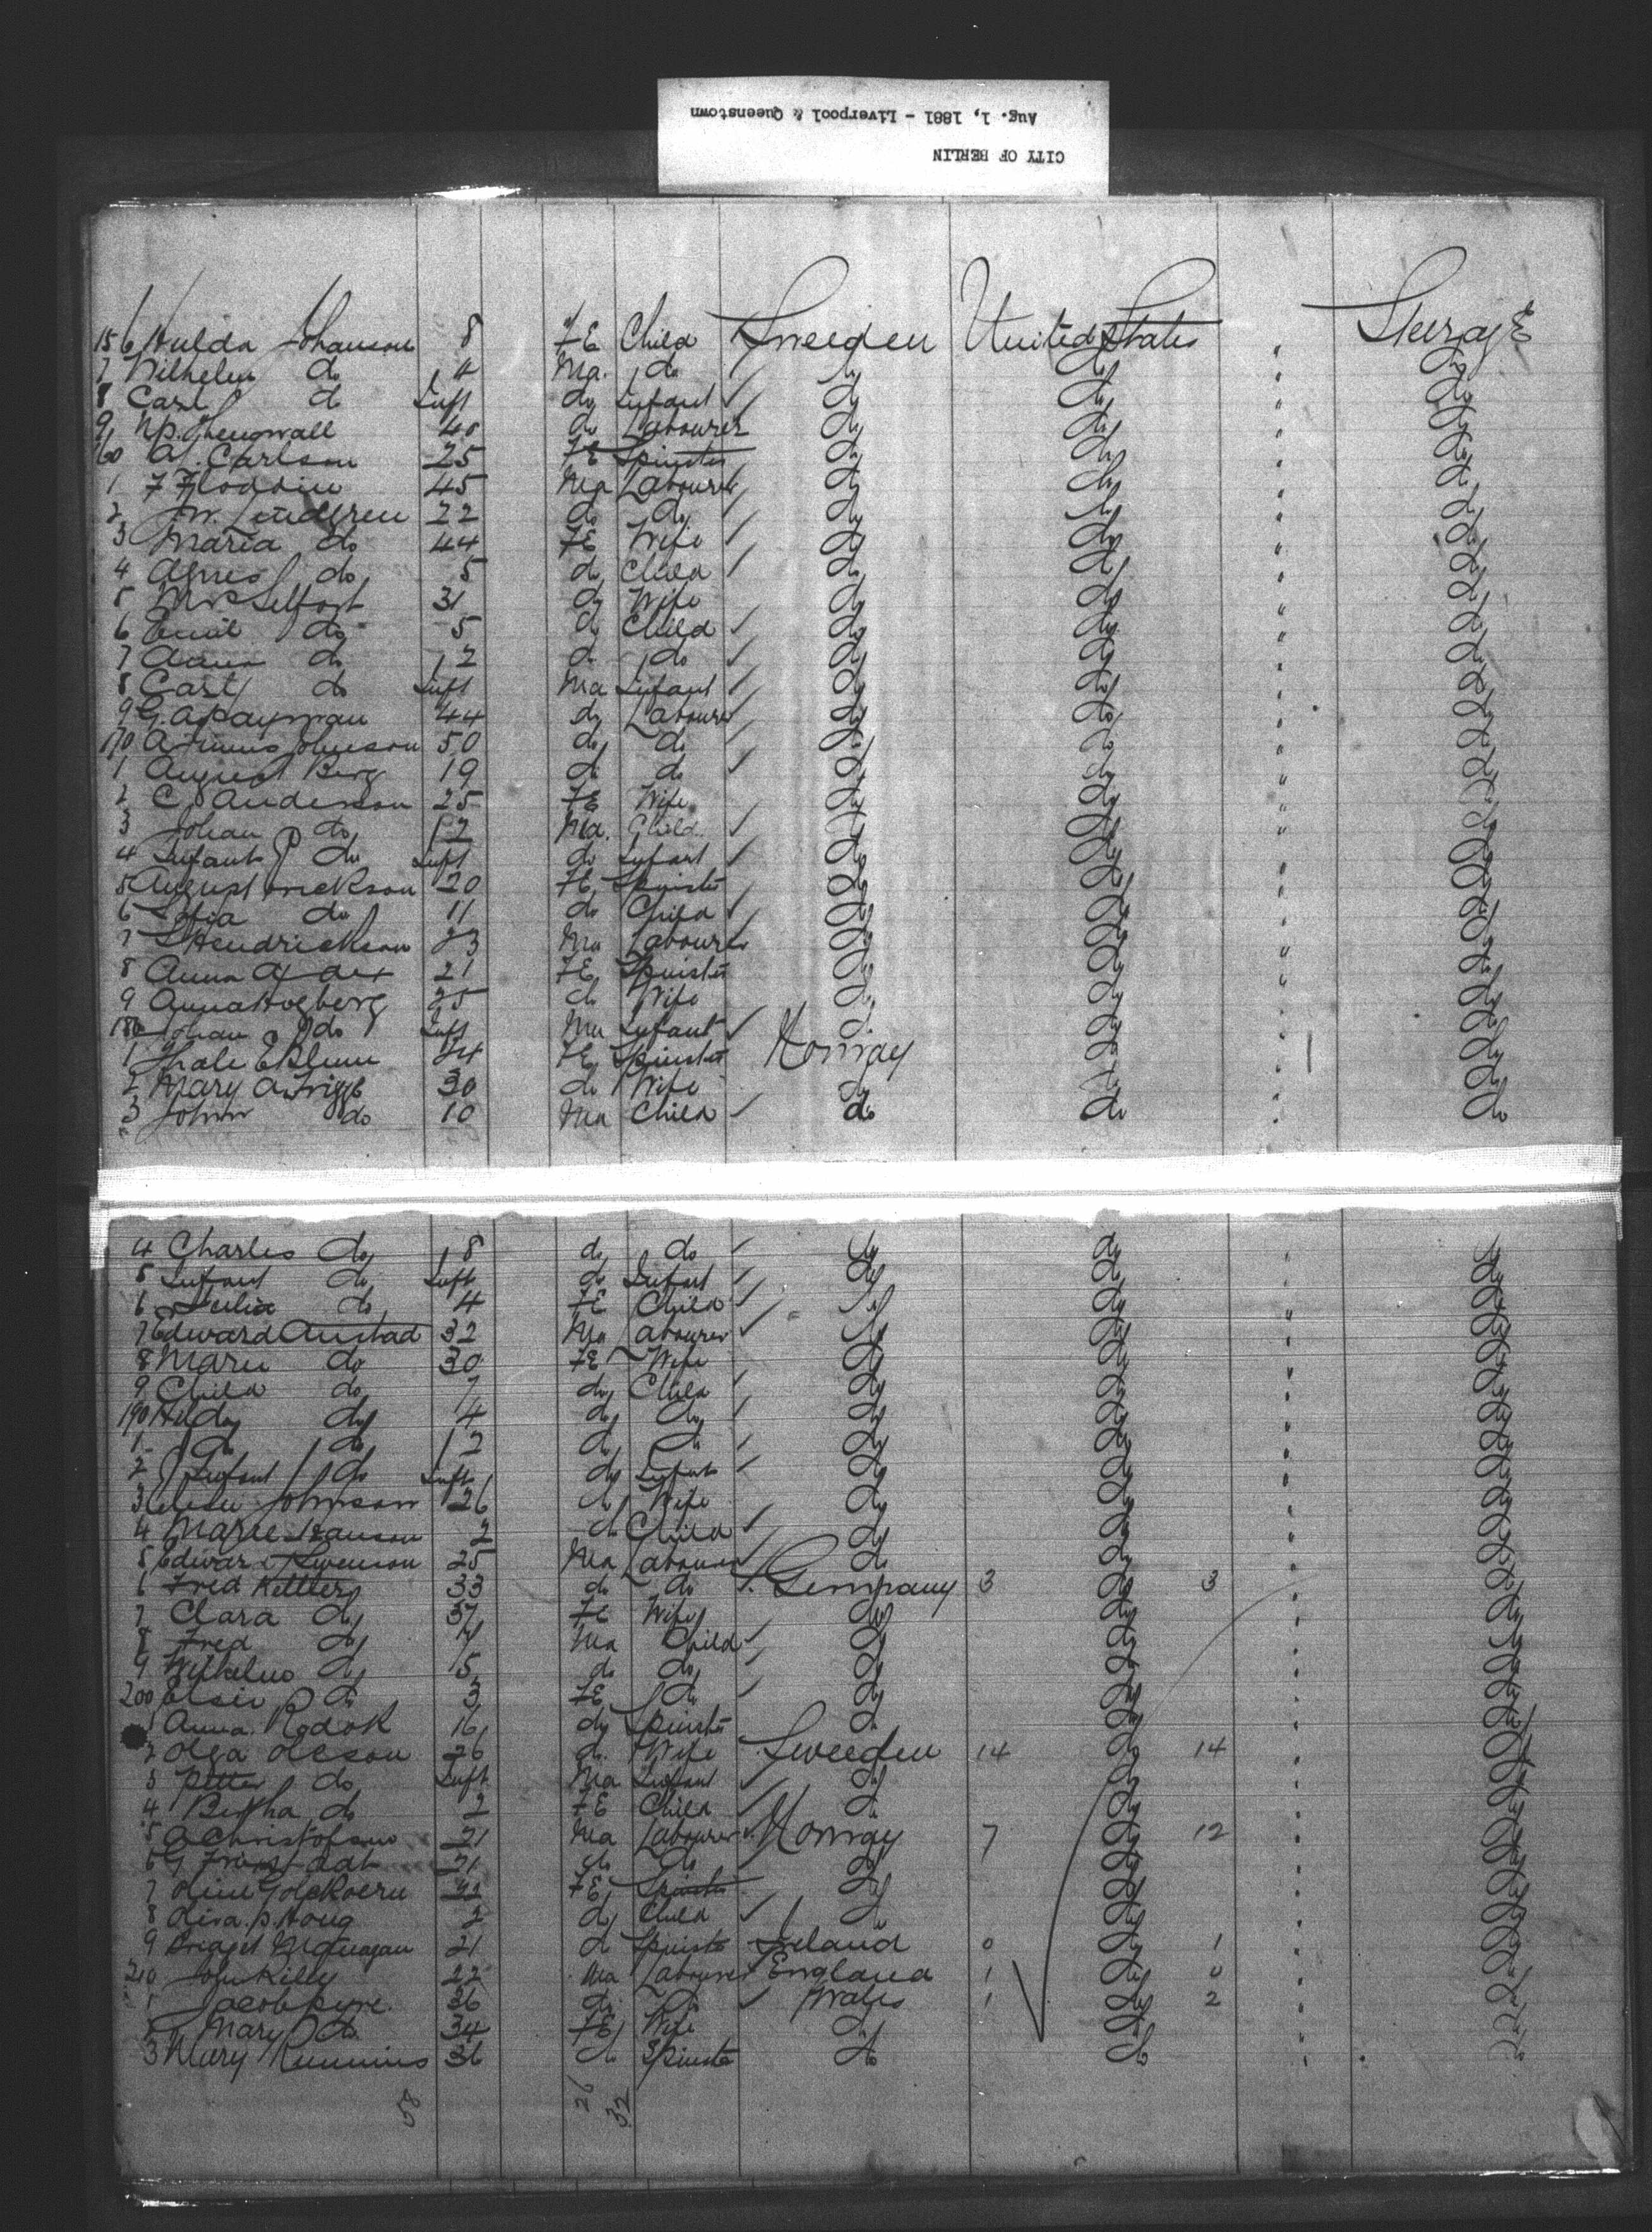 CITY OF BERLIN
Aug. 1, 1881 - Liverpool & Queenstown
156 Hulda Johanson 8 FE Child Sweeden United States " Steerage
7 Wilhelm do Ma. do do do " do
8 Carl do Inft do Infant do do " do
9 40 do Labourer do do " do
160 A. Carlson 25 FE Spinster do do " do
1 45 Ma Labourer do do " do
2 Lindgren 22 do do do do " do
3 Maria do 44 FE Wife do do " do
4 Agnes do 5 do Child do do " do
5 31 do Wife do do " do
6 Emil do 5 do Child do do " do
7 Anna do 2 do do do do " do
8 Carl do Inft Ma Infant do do " do
9 44 do Labourer do do " do
170 Johnson 50 do do do do " do
1 August Berg 19 do do do do " do
2 C. Anderson 25 FE Wife do do " do
3 Johan do Ma. Child do do " do
4 Infant do Inft do Infant do do " do
5 August Erickson 20 FE Spinster do do " do
6 Sofia do 11 do Child do do " do
7 Hendrickson 23 Ma Labourer do do " do
8 Anna 21 FE Spinster do do " do
9 Anna Hogberg 25 do Wife do do " do
180 Johan do Inft Ma Infant do do " do
1 24 FE Spinster Norway do " do
2 Mary A. 30 do Wife do do " do
3 John do 10 Ma Child do do " do
4 Charles do 8 do do do do " do
5 Infant do Inft do Infant do do " do
6 Julia do 4 FE Child do do " do
7 Edward Austad 32 Ma Labourer do do " do
8 Marie do 30 FE Wife do do " do
9 Child do 7 do Child do do " do
190 Hilda do 4 do do do do " do
1 do do 2 do do do do " do
2 Infant do Inft do Infant do do " do
3 Johnson 26 do Wife do do " do
4 Marie Hanson 2 do Child do do " do
5 Edward Swenson 25 Ma Labourer do do " do
6 Fred Kettler 33 do do Germany 3 do 3 " do
7 Clara do 37 FE Wife do do " do
8 Fred do 7 Ma Child do do " do
9 Wilhelm do 5 do do do do " do
200 Elsie do 3 FE do do do " do
1 Anna Rodok 16 do Spinster do do " do
2 Olga Oleson 26 do Wife Sweeden 14 do 14 " do
3 Petter do Inft Ma Infant do do " do
4 Bertha do 2 FE Child do do " do
5 A Christofson 21 Ma Labourer Norway 7 do 12 " do
6 21 do do do do " do
7 22 FE Spinster do do " do
8 2 do Child do do " do
9 Bridget 21 do Spinster Ireland 0 do 1 " do
210 John Killy 22 Ma Labourer England 1 do 0 " do
1 Jacob 36 do do Wales 1 do 2 " do
2 Mary do 34 FE Wife do do " do
3 Mary 36 do Spinster do do " do
58 26 32